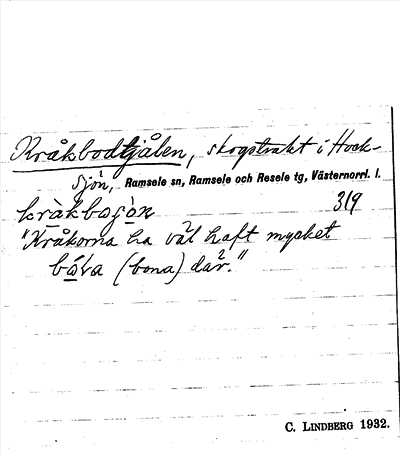 Kråkbodtjålen, skogstrakt i Hock-
sjön, Ramsele sn, Ramsele och Resele tg, Västernorrl. l.
319
"Kråkorna ha väl haft mycket
(bona) där."
C. LINDBERG 1932.